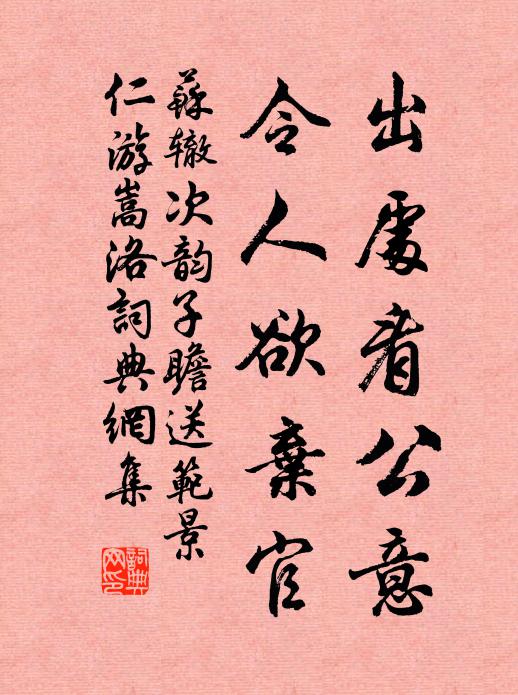 出處看公意
令人欲棄官
蘇辙次韵子瞻送範景
仁游嵩洛詞典網集
詞典網印